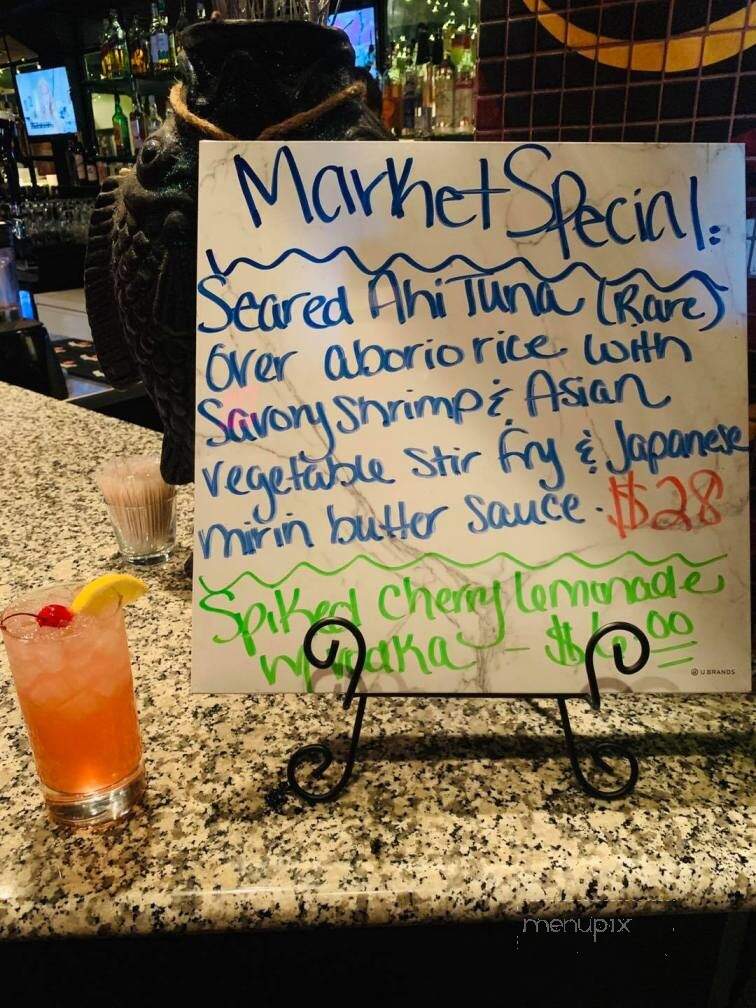 Market Special:
Seared Ahi Tuna (Rare)
over aborio rice with
Savory Shrimp & Asian
vegetable stir fry & Japanese
mirin butter sauce. $28
Spiked Cherry Lemonade
- $6.00
U BRANDS
menupix